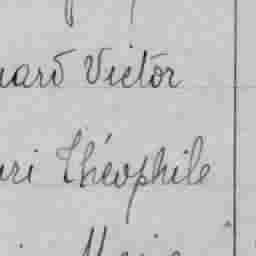 uard Victor
uri Théophile